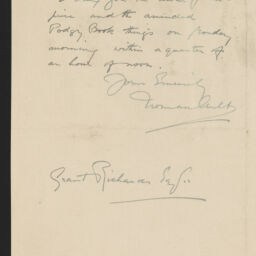 and the amended
Podgy Book things on Monday
morning within a quarter of
an hour of noon.
Yours Sincerely
Norman Ault
Grant Richards Esq.